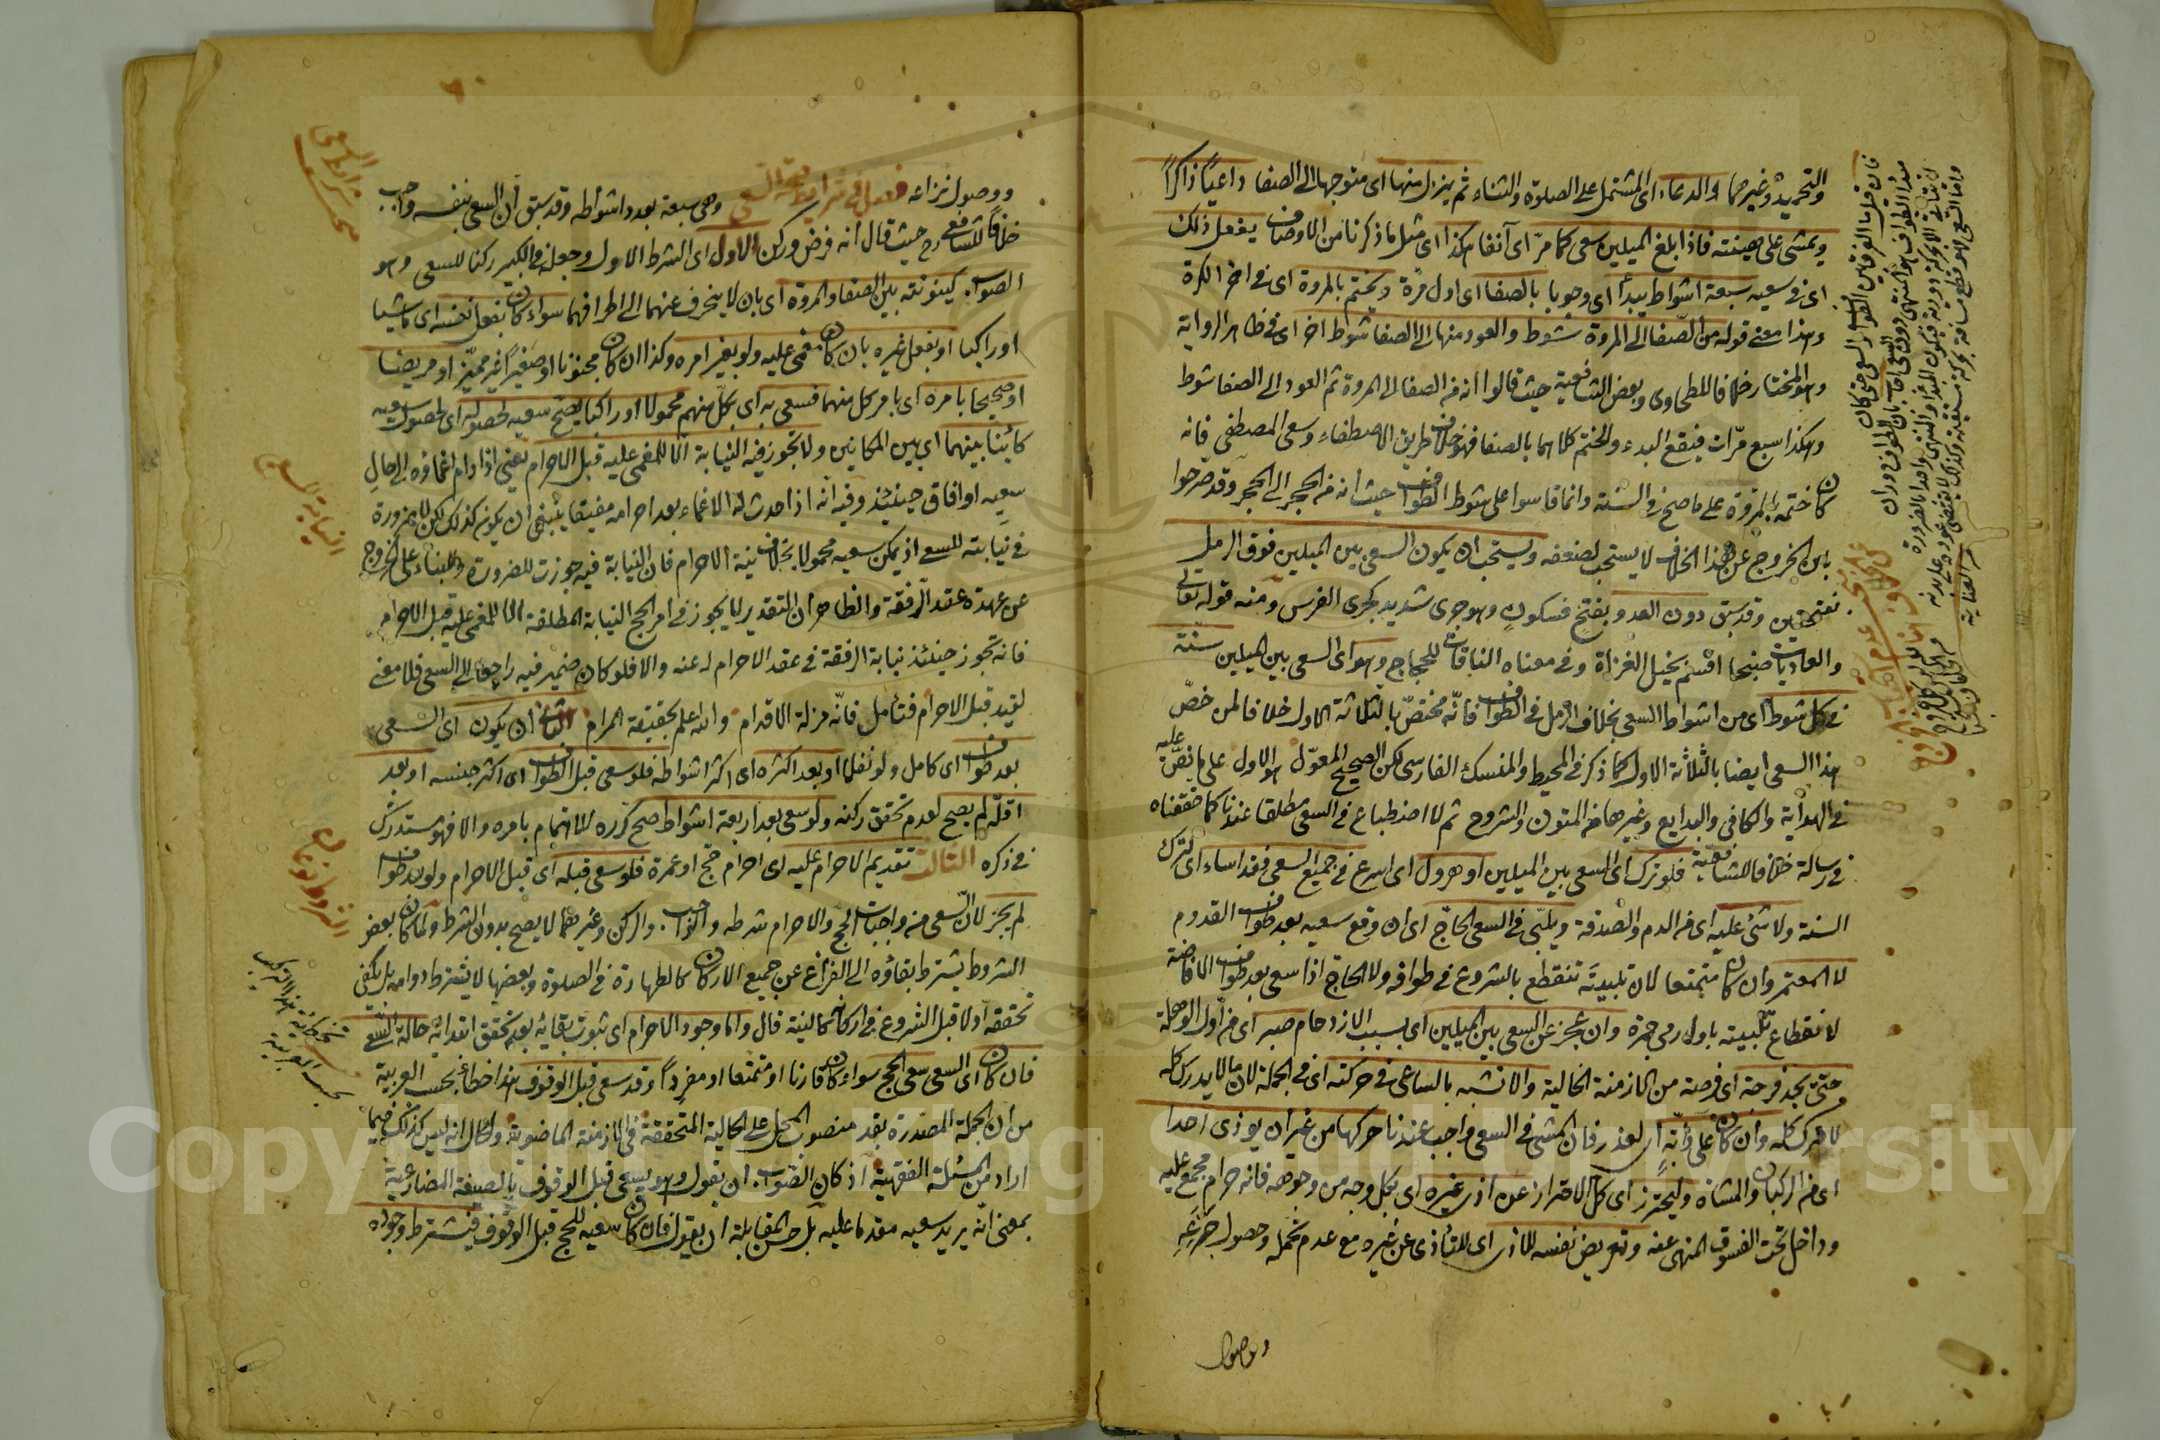 والتحميد وغيرهما والدعاء اى المشتمل على الصلوة والثناء ثم ينزل منها اى متوجها الى الصفا داعيًا ذاكرًا
ويمشى على هينته فاذا بلغ الميلين سعى كما مرّ اى آنفا هكذا اى مثل ما ذكرنا من الاوصاف يفعل ذلك
اى فى سعيه سبعة اشواط يبدأ اى وجوبا بالصفا اى اول مرة ويختم بالمروة اى فى اخر الكرة
وهذا معنى قوله من الصّفا الى المروة شوط والعود منها الى الصفا شوط اخر اى فى ظاهر الرواية
وهو المختار خلافا للطحاوى وبعض الشافعية حيث قالوا انه من الصفا الى المروة ثم العود الى الصفا شوط
وهكذا سبع مرّات فيقع البدء والختم كلاهما بالصفا فهو خلاف طريق الاصطفاء وسعى المصطفى فانه
كان ختمه بالمروة على ما صح فى السنة وانما قاسوا على شوط الطواف حيث انه من الحجر الى الحجر وقد صرحوا
بان الخروج عن هذا الخلاف لا يستحب لضعفه ويستحب ان يكون السعى بين الميلين فوق الرمل
بفتحتين وقد سبق دون العدو بفتح فسكون وهو جرى شديد كجرى الفرس ومنه قوله تعالى
والعاديات ضبحا اقسم بخيل الغزاة وفى معناه الناقات للحجاج وهو اى السعى بين الميلين سنّة
فى كل شوط اى من اشواط السعى بخلاف الرمل فى الطواف فانّه مختصّ بالثلاثة الاول خلافا لمن خصّ
هذا السعى ايضا بالثلاثة الاول كما ذكر فى المحيط والمنسك الفارسى لكن الصحيح المعوّل هو الاول على ما نصّ عليه
فى الهداية والكافى والبدايع وغيرها من المتون والشروح ثم لا اضطباع فى السعى مطلقا عندنا كما حققناه
فى رسالة خلافا للشافعية فلو ترك اى السعى بين الميلين او هرول اى اسرع فى جميع السعى فقد اساء اى لترك
السنة ولا شئ عليه اى من الدم والصدقة ويلبّى فى السعى الحاجّ اى ان وقع سعيه بعد طواف القدوم
لا المعتمر وان كان متمتعا لان تلبيته تنقطع بالشروع فى طوافه ولا الحاج اذا سعى بعد طواف الافاضة
لانقطاع تلبيته باول رمى جمرة وان عجز عن السعى بين الميلين اى بسبب الازدحام صبر اى من اول الوهلة
حتى يجد فرجة اى فرصة من الازمنة الخالية والا تشبه بالساعى فى حركته اى فى الجملة لان ما لا يدرك كله
لا يترك كله وان كان على دابّة اى لعذر فان المشى فى السعى واجب عندنا حركها من غير ان يوذى احدا
اى من الركبان والمشاة وليحترز اى كل الاحتراز عن اذى غيره اى بكل وجه من وجوهه فانه حرام مجمع عليه
وداخل تحت الفسوق المنهى عنه وتعريض نفسه للاذى اى للتأذى عن غيره مع عدم تحمله وحصول جزعه
ووصول
فان قيل ما الفرق بين الطواف والسعى حتى كان
مبدأ الطواف هو المنتهى دون السعى اجاب بان الطواف دوران
لا يتأتى الا بحركة دورية فيكون المبدأ والمنتهى واحدا بالضرورة
واما السعى فهو قطع مسافة بحركة مستقيمة وذلك لا يقتضى عوده على بدئه
من العناية
ووصول نزاعه فصل فى شرايط صحة السعى وهى سبعة بعدد اشواطه وقد سبق ان السعى بنفسه واجب
خلافًا للشافعى رح حيث قال انه فرض وركن الاول اى الشرط الاول وجعله فى الكبير ركنا للسعى وهو
الصواب كينونته بين الصفا والمروة اى بان لا ينحرف عنهما الى اطرافهما سواء كان بفعل نفسه اى ماشيا
او راكبا او بفعل غيره بان كان مغمى عليه ولو بغير امره وكذا ان كان مجنونا او صغيرًا غير مميّز او مريضا
او صحيحا بامره اى بامر كل منهما فسعى به اى بكل منهم محمولا او راكبا يصح سعيه لحصوله اى لحصول سعيه
كائنا بينهما اى بين المكانين ولا تجوز فيه النيابة الّا للمغمى عليه قبل الاحرام يعنى اذا دام اغماؤه الى حال
سعيه او افاق حينئذ وفيه انه اذا حدث له الاغماء بعد احرامه مفيقا ينبغى ان يكون كذلك لكن لا ضرورة
فى نيابته للسعى اذ يمكن سعيه محمولا بخلاف نية الاحرام فان النيابة فيه جوزت للضرورة وللبناء على الخروج
عن عهدة عقد الرفقة والظاهر ان التقدير لا يجوز فى امر الحج النيابة المطلقة الا للمغمى عليه قبل الاحرام
فانه تجوز حينئذ نيابة الرفقة فى عقد الاحرام له عنه والا فلو كان ضمير فيه راجعا الى السعى فلا معنى
لقيد قبل الاحرام فتأمل فانّه مزلة الاقدام والله اعلم بحقيقة المرام الثانى ان يكون اى السعى
بعد طواف اى كامل ولو نفلا او بعد اكثره اى اكثر اشواطه فلو سعى قبل الطواف اى اكثر جنسه او بعد
اقلّه لم يصح لعدم تحقق ركنه ولو سعى بعد اربعة اشواط صح كرره للاهتمام بامره والا فهو مستدرك
فى ذكره الثالث تقديم الاحرام عليه اى احرام حج او عمرة فلو سعى قبله اى قبل الاحرام ولو بعد طواف
لم يجز لان السعى من واجبات الحج والاحرام شرطه والواجب والركن وغيرهما لا يصح بدون الشرط ولما كان بعض
الشروط يشترط بقاؤه الى الفراغ عن جميع الاركان كالطهارة فى الصلوة وبعضها لا يشترط دوامه بل يكفى
تحققه اولا قبل الشروع فى اركانه كالنية قال واما وجود الاحرام اى ثبوت بقائه بعد تحقق ابتدائه حالة السعى
فان كان اى السعى سعى الحج سواء كان قارنا او متمتعا او مفردًا وقد سعى قبل الوقوف هذا خطأ بحسب العربية
من ان الجملة المصدرة بقد منصوب المحل على الحالية المتحققة فى الازمنة الماضوية والحال انه ليس كذلك فيما
اراد من المسئلة الفقهية اذ كان الصواب ان يقول وهو يسعى قبل الوقوف بالصيغة المضارعية
بمعنى انّه يريد سعيه مقدما عليه بل حسن المقابلة ان يقول فان كان سعيه للحج قبل الوقوف فيشترط وجوده
شرايط صحة السعى
النيابة فى السعى
بحسب العربية